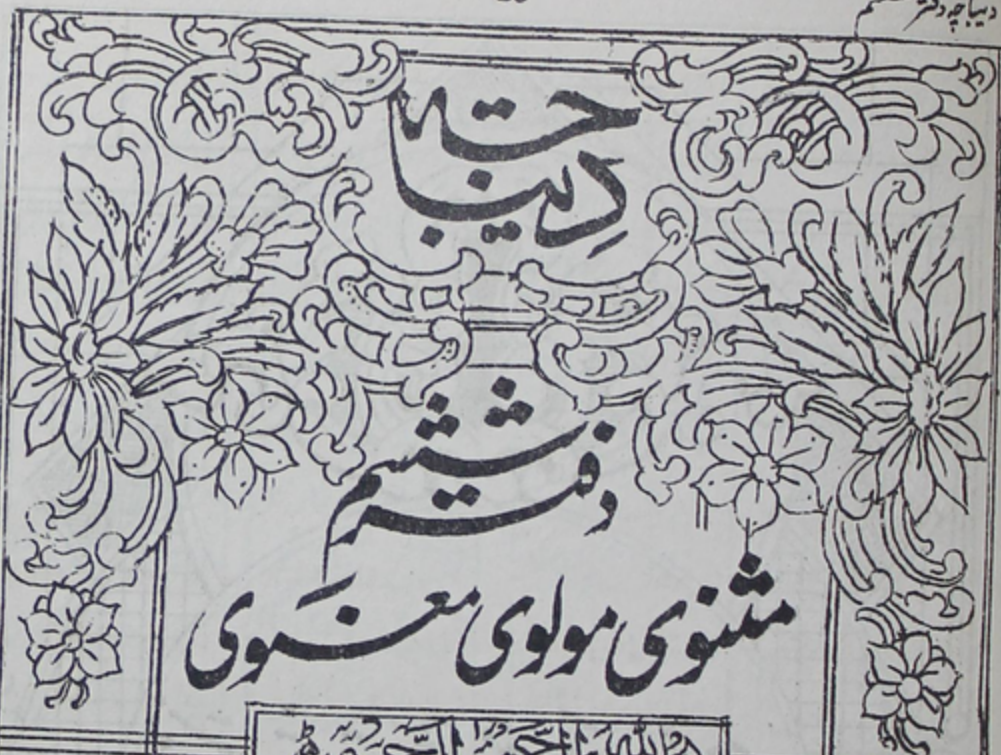 دیباچه دفتر ششم
دیباچه
دفتر ششم
مثنوی مولوی معنوی